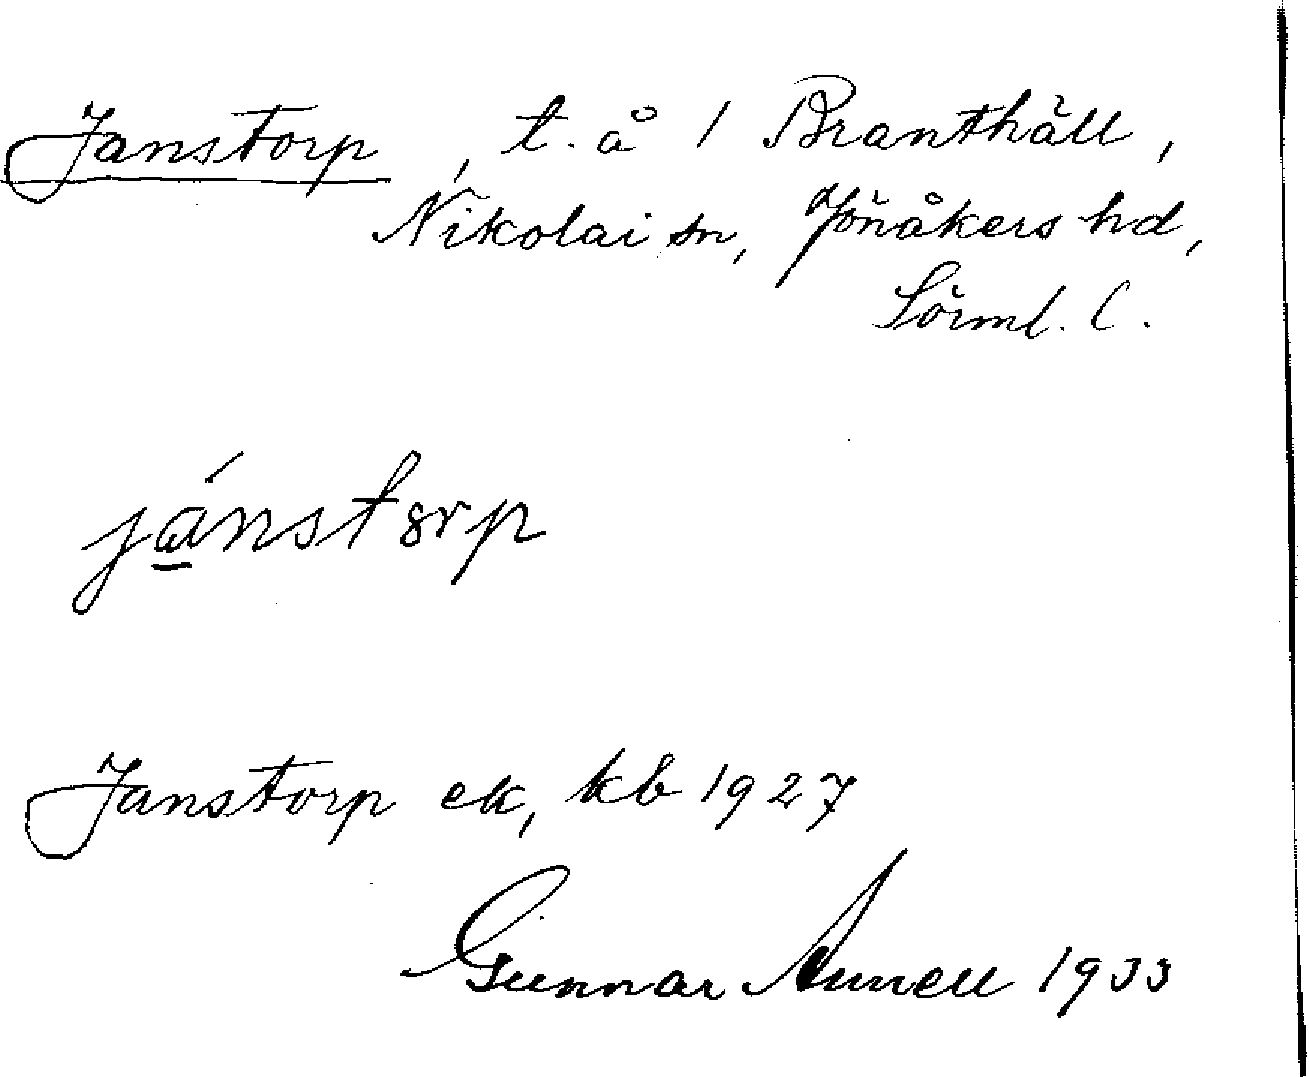 Janstorp, t. å 1 Branthäll,
Nikolai sn, Jönåkers hd,
Sörml. l.
jánstorp
Janstorp ek, kb 1927
Gunnar Annell 1933